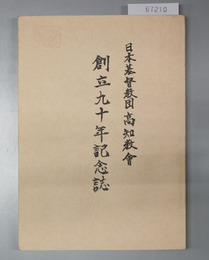 日本基督教団高知教會
創立九十年記念誌
67210